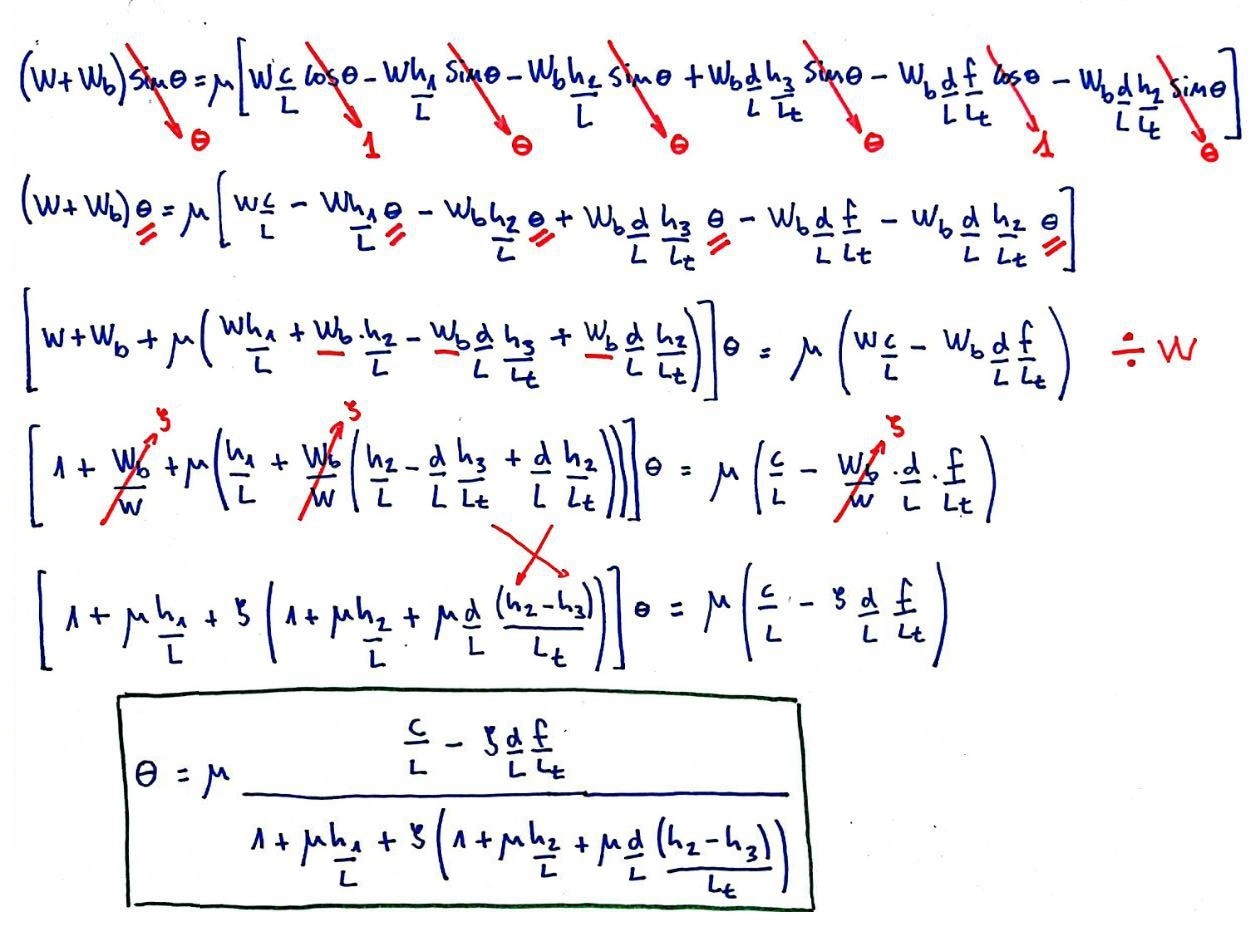 (W+W_b) sinθ = μ[W c/L cosθ - Wh₁/L sinθ - W_b h₂/L sinθ + W_b d/L h₃/L_t sinθ - W_b d/L f/L_t cosθ - W_b d/L h₂/L_t sinθ]
θ 1 θ θ θ 1 θ
(W+W_b) θ = μ[W c/L - Wh₁/L θ - W_b h₂/L θ + W_b d/L h₃/L_t θ - W_b d/L f/L_t - W_b d/L h₂/L_t θ]
[W+W_b + μ(Wh₁/L + W_b·h₂/L - W_b d/L h₃/L_t + W_b d/L h₂/L_t)]θ = μ(W c/L - W_b d/L f/L_t) ÷ W
ζ ζ ζ
[1 + W_b/W + μ(h₁/L + W_b/W(h₂/L - d/L h₃/L_t + d/L h₂/L_t))]θ = μ(c/L - W_b/W · d/L · f/L_t)
[1 + μ h₁/L + ζ(1 + μ h₂/L + μ d/L (h₂-h₃)/L_t)]θ = μ(c/L - ζ d/L f/L_t)
θ = μ (c/L - ζ d/L f/L_t)/(1 + μ h₁/L + ζ(1 + μ h₂/L + μ d/L (h₂-h₃)/L_t))